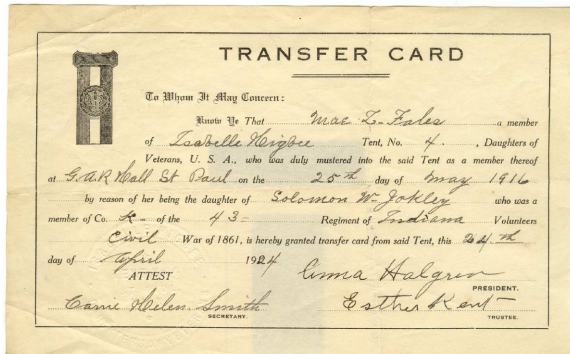 TRANSFER CARD
To Whom It May Concern:
Know Ye That Mae Z. Fales a member
of Isabelle Higbee Tent, No. 4. , Daughters of
Veterans, U. S. A., who was duly mustered into the said Tent as a member thereof
at G.A.R Hall St Paul on the 25th day of May 1916
by reason of her being the daughter of Solomon W. who was a
member of Co. K- of the 43- Regiment of Indiana Volunteers
Civil War of 1861, is hereby granted transfer card from said Tent, this 24th
day of April 1924
ATTEST
Anna Halgren
PRESIDENT.
Carrie Helen Smith
SECRETARY.
Esther Kent
TRUSTEE.